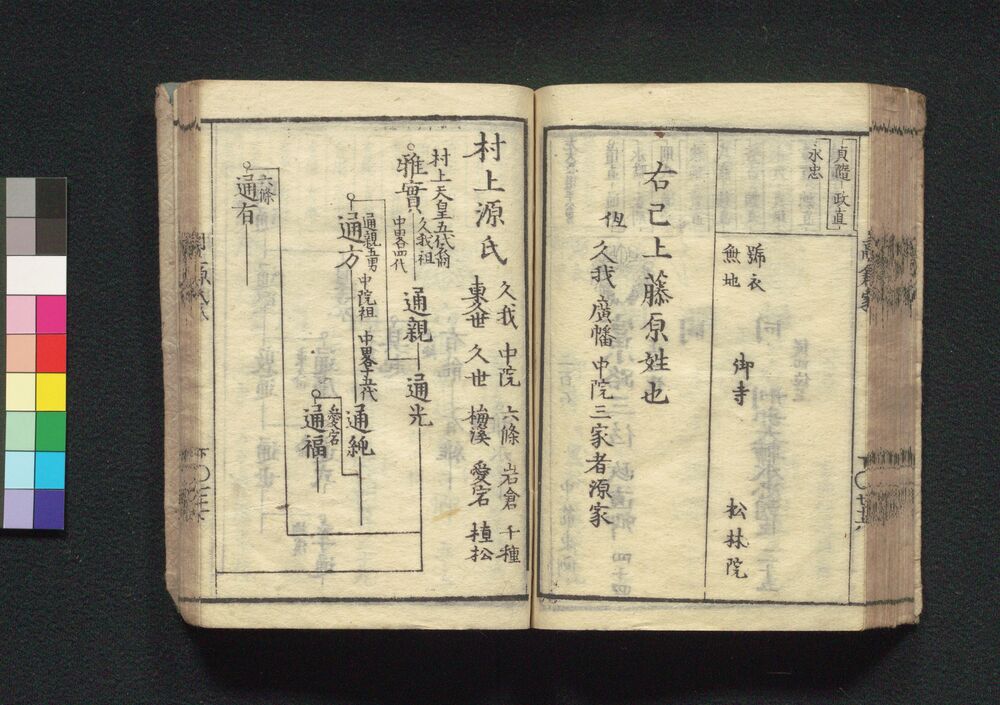 貞隆 政直
永忠
号衣
無地
御寺
松林院
右已上藤原姓也
但久我廣幡中院三家者源家
村上源氏
久我 中院 六條 岩倉 千種
東久世 久世 梅溪 愛宕 植松
村上天皇五代裔
久我祖
雅實
中畧四代
通親
通光
通親五男
中院祖
通方
中畧十五代
通純
愛宕
通福
六條
通有